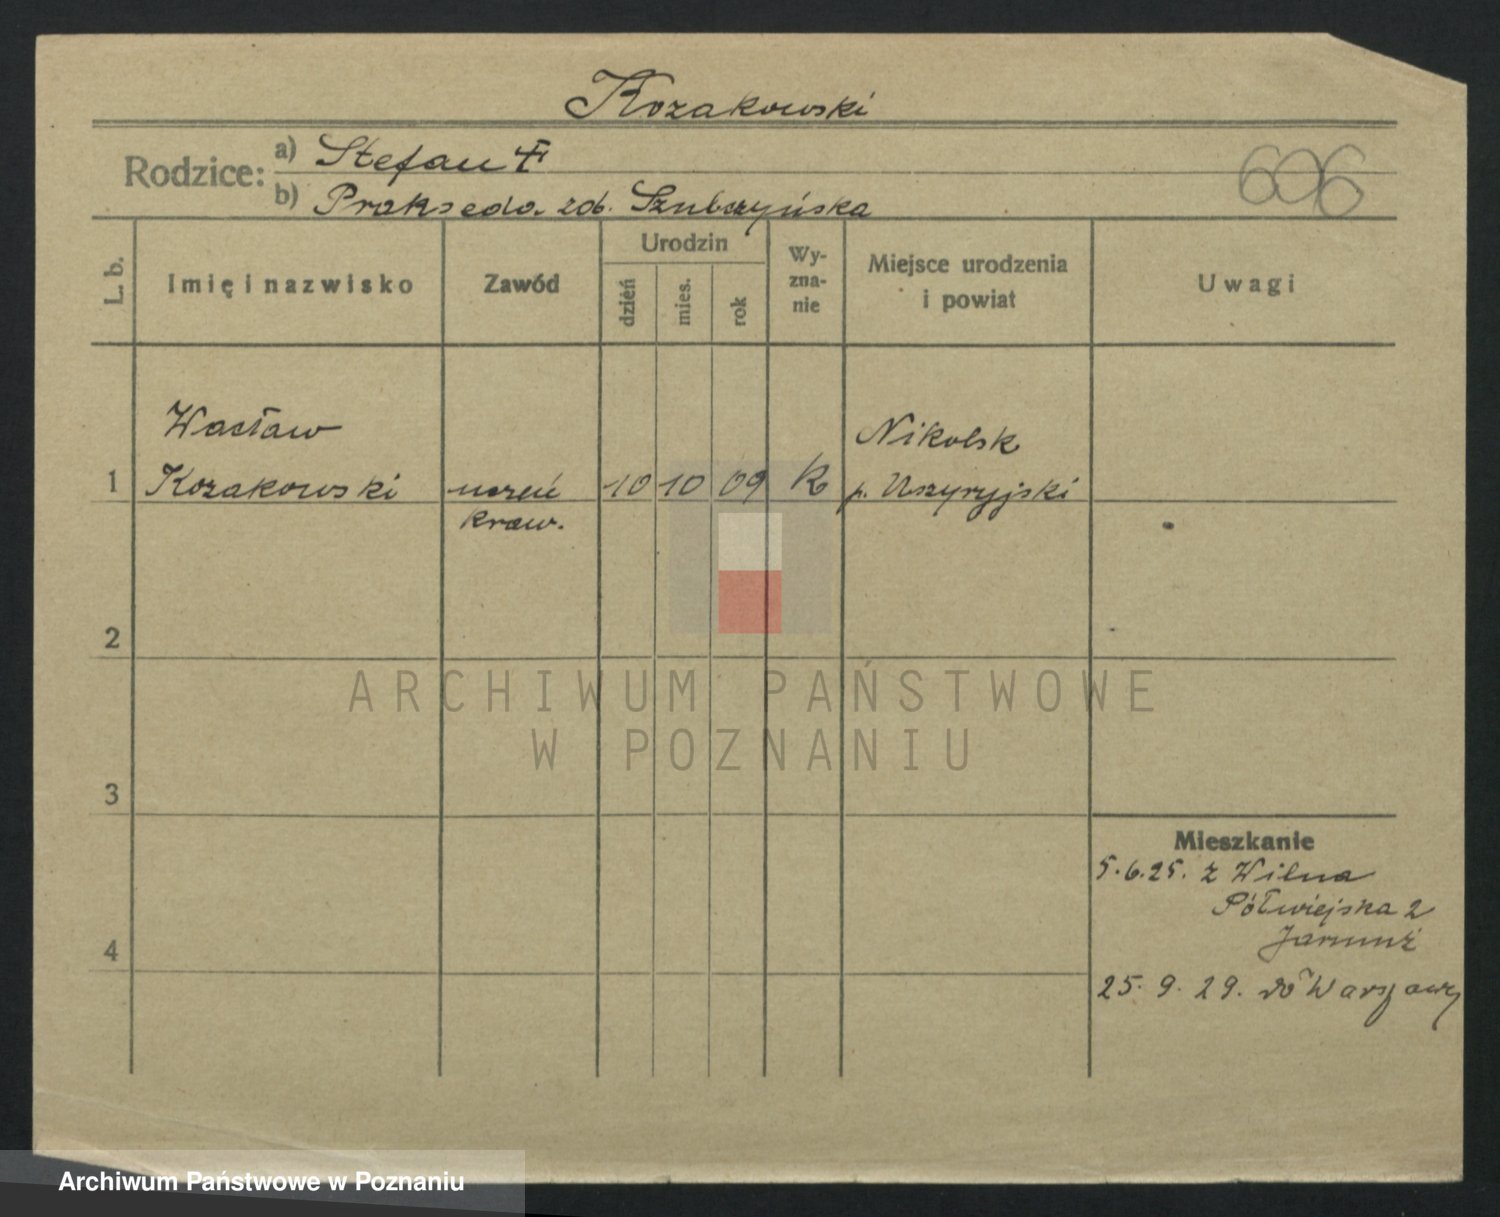 Kozakowski
Rodzice: a) Stefan ✝
b) Prakseda zob. Szubczyńska
606
L. b.
Imię i nazwisko
Zawód
Urodzin
dzień
mies.
rok
Wy-
zna-
nie
Miejsce urodzenia
i powiat
Uwagi
Wacław
Nikolsk
1 Kozakowski uczeń 10 10 09 k p. Uszyryjski
kraw.
2
ARCHIWUM PAŃSTWOWE
W POZNANIU
3
Mieszkanie
5.6.25. z Wilna
Półwiejska 2
4
25. 9. 29. do Warszawy
Archiwum Państwowe w Poznaniu